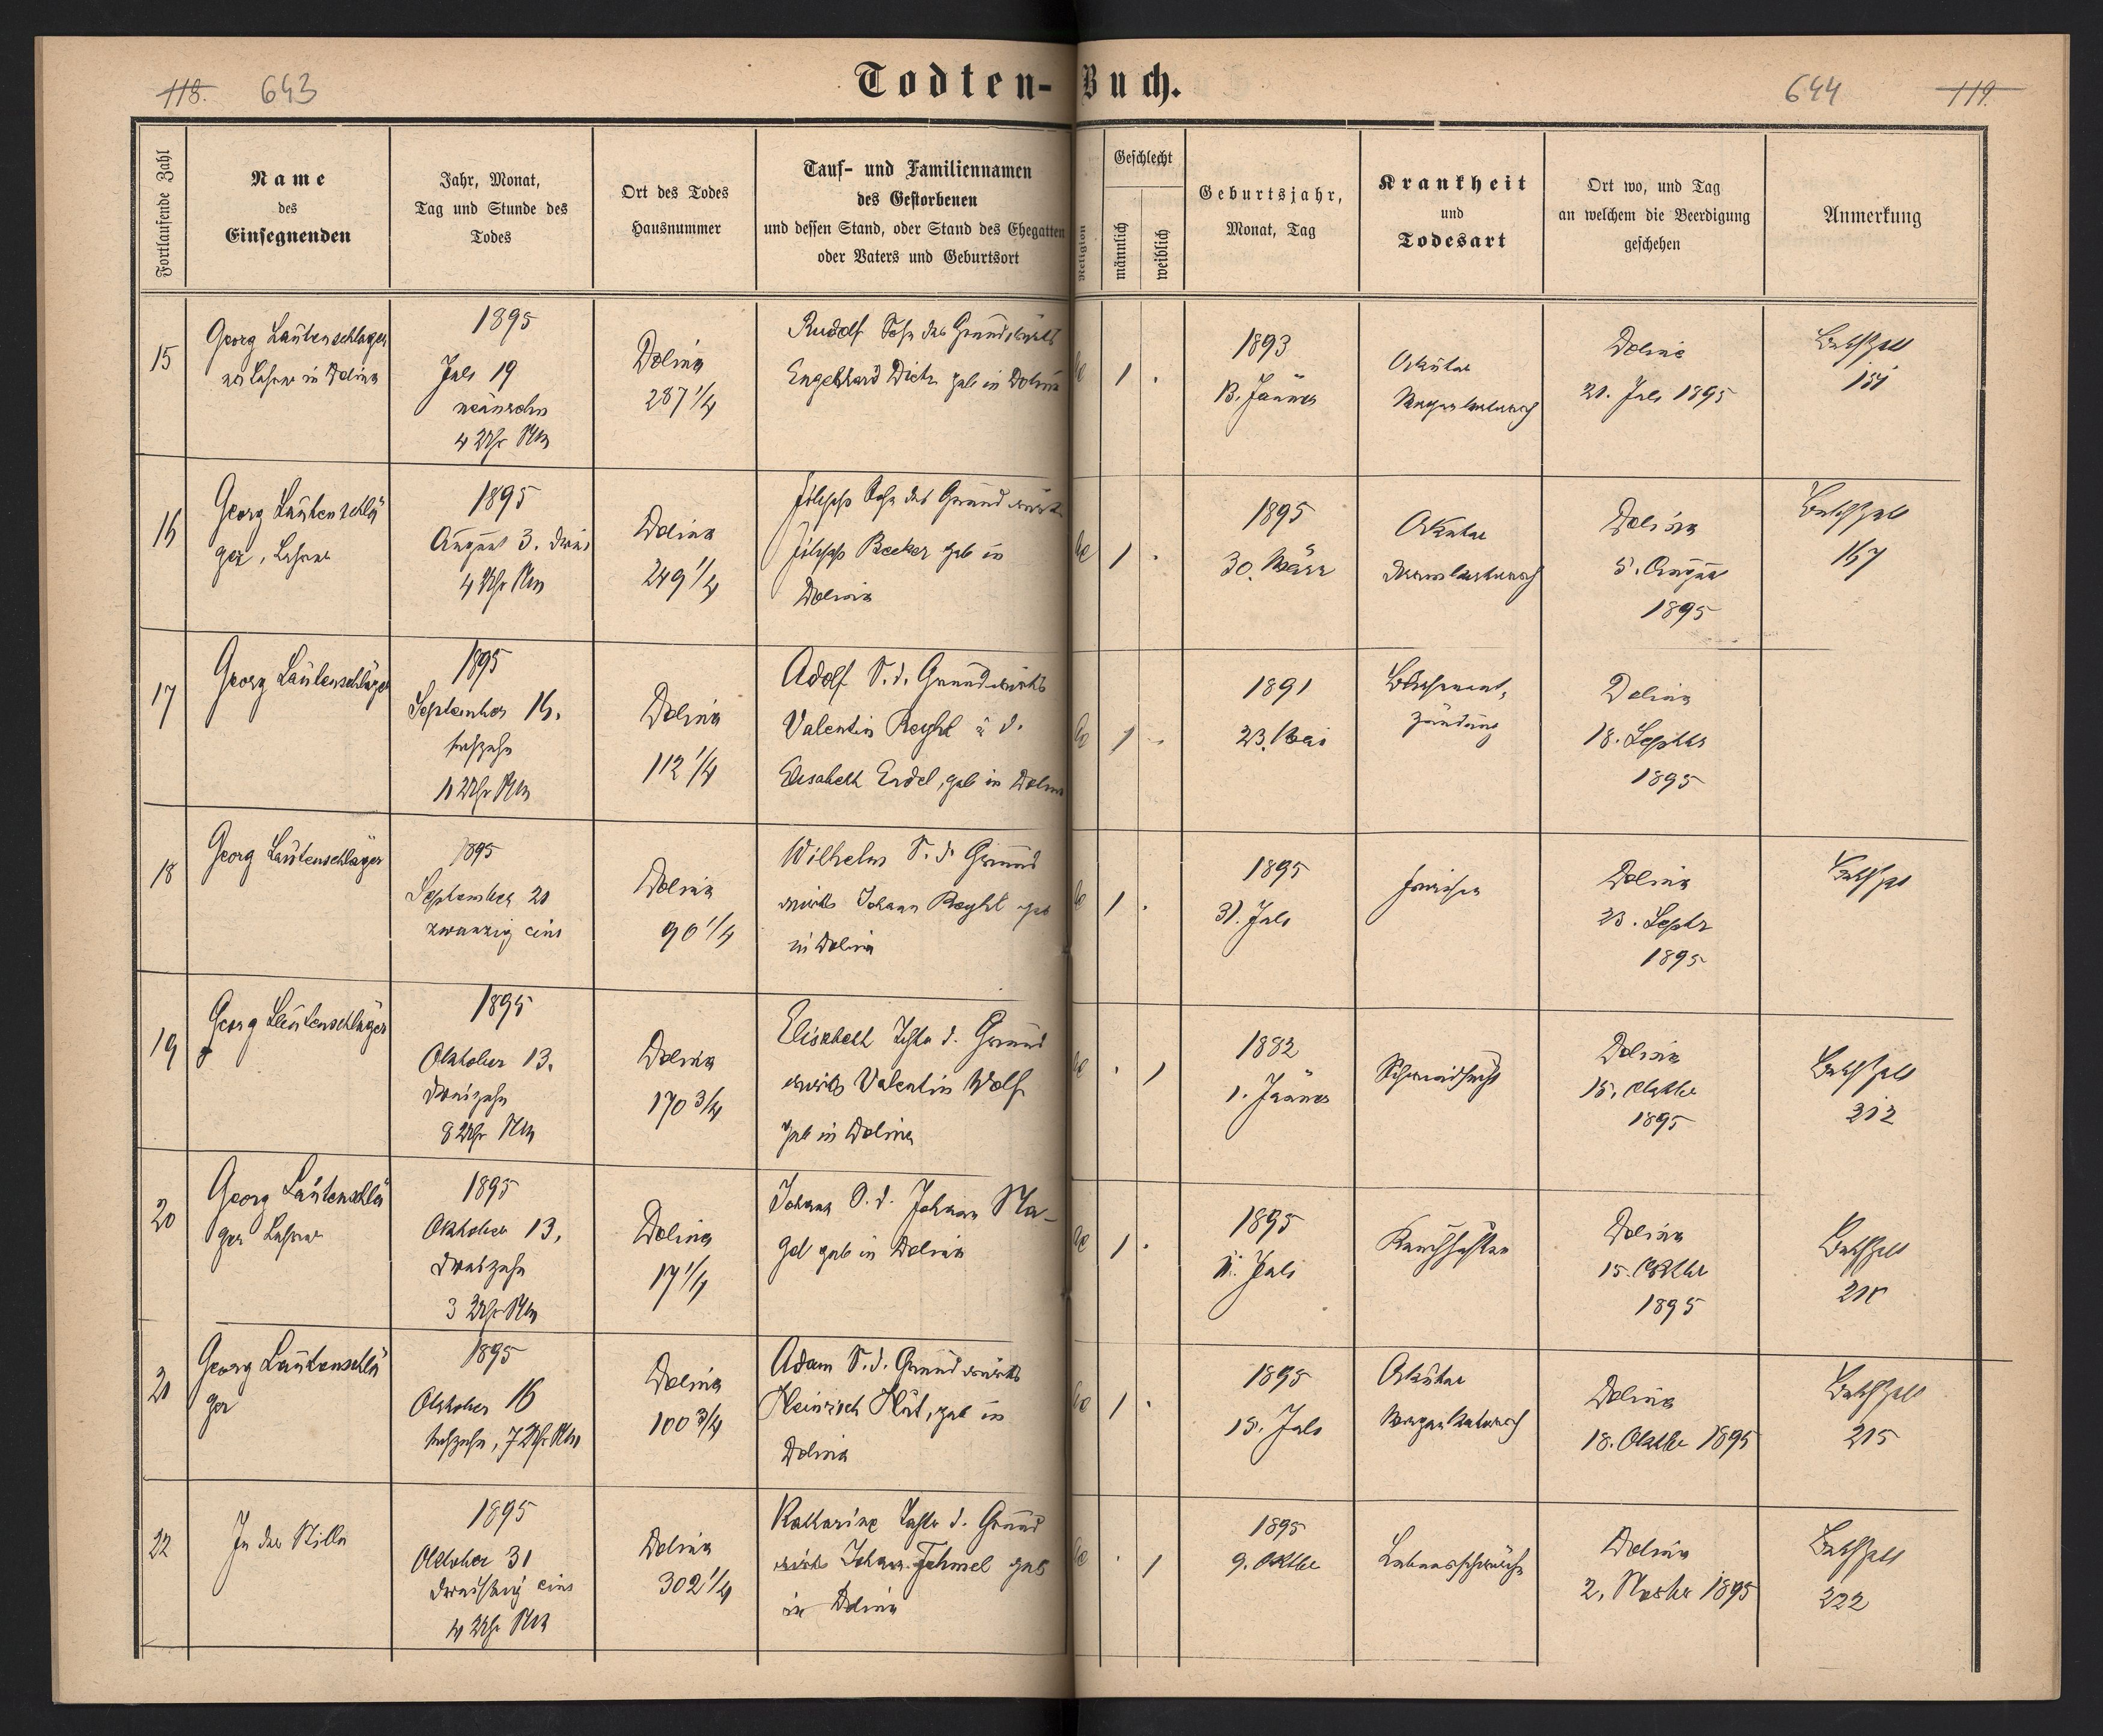 118. 643
Todten-Buch.
644 119.
Fortlaufende Zahl
Name
des
Einsegnenden
Jahr, Monat,
Tag und Stunde des
Todes
Ort des Todes
Hausnummer
Tauf- und Familiennamen
des Gestorbenen
und dessen Stand, oder Stand des Ehegatten
oder Vaters und Geburtsort
Religion
Geschlecht
männlich
weiblich
Geburtsjahr,
Monat, Tag
Krankheit
und
Todesart
Ort wo, und Tag
an welchem die Beerdigung
geschehen
Anmerkung
15
Georg Lautenschlager
Lehrer in Dolina
1895
Juli 19
neunzehn
4 Uhr Nm
Dolina
287 1/4
Rudolf Sohn des Grundwirts
Engelhard Dietz geb in Dolina
1
1893
13. Jänner
Akuter
Magenkatarrh
Dolina
21. Juli 1895
16
Georg Lautenschlä
ger, Lehrer
1895
August 3. drei
4 Uhr Nm
Dolina
249 1/4
Filipp Sohn des Grundwirts
Filipp Becker geb in
Dolina
1
1895
30. März
Akuter
Darmkatarrh
Dolina
5. August
1895
167
17
Georg Lautenschläger
1895
September 16.
sechzehn
Uhr Nm
Dolina
112 1/4
Adolf S. d. Grundwirts
Valentin Reyhl u d.
Elisabeth Endel, geb in Dolina
1
1891
23. Mai
zündung
Dolina
18. Septbr
1895
18
Georg Lautenschläger
1895
September 21
zwanzig eins
Dolina
90 1/4
Wilhelm S. d. Grund
wirts Johann Reyhl geb
in Dolina
1
1895
31. Juli
Fraisen
Dolina
23. Septr
1895
19
Georg Lautenschläger
1895
Oktober 13.
dreizehn
8 Uhr Nm
Dolina
170 3/4
Elisabeth Tochter d. Grund
wirts Valentin Wolf
geb in Dolina
1
1882
1. Jänner
Schwindsucht
Dolina
15. Oktbr
1895
212
20
Georg Lautenschlä
ger Lehrer
1895
Oktober 13.
dreizehn
3 Uhr Nm
Dolina
17 1/4
Johann S. d. Johann Na-
gel geb in Dolina
1
1895
Juli
Keuchhusten
Dolina
15. Oktbr
1895
21
Georg Lautenschlä
ger
1895
Oktober 16
sechzehn, 7 Uhr Nm
Dolina
100 3/4
Adam S. d. Grundwirts
Heinrich Hút, geb in
Dolina
1
1895
15. Juli
Akuter
Magenkatarrh
Dolina
18. Oktbr 1895
215
22
In der Stille
1895
Oktober 31
dreissig eins
4 Uhr Nm
Dolina
302 1/4
Katharine Tochter d. Grund
wirts Johann Fehmel geb
in Dolina
1
1895
9. Oktbr
Lebensschwäche
Dolina
2. Novbr 1895
222